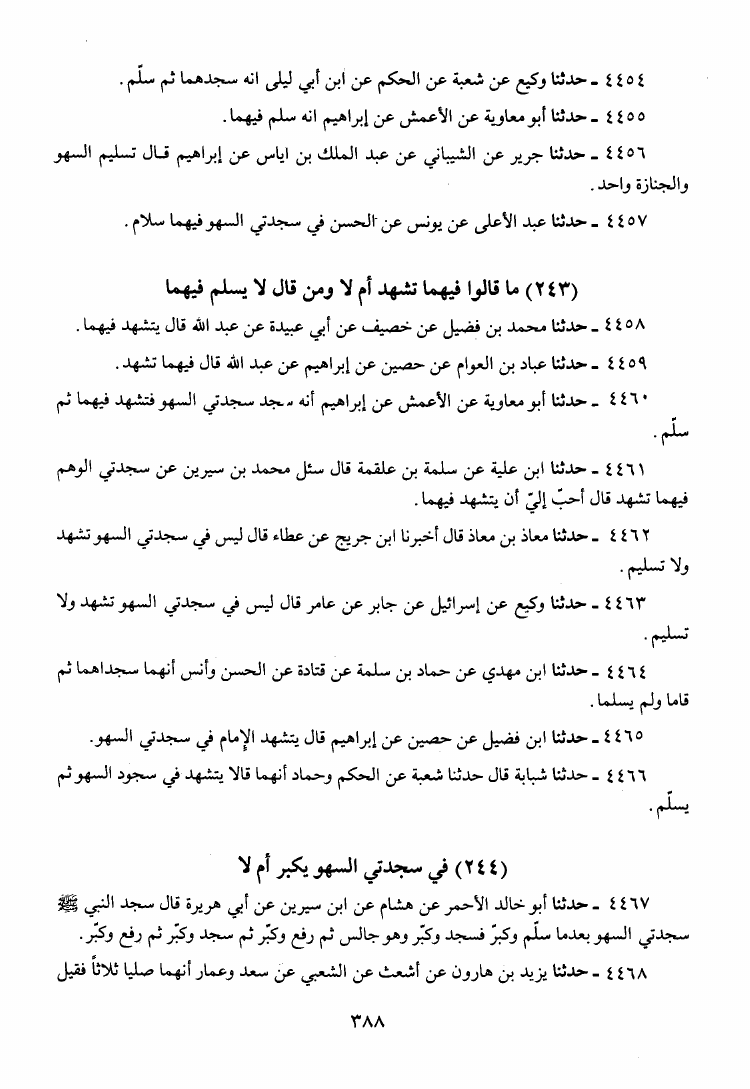 ٤٤٥٤ ـ حدثنا وكيع عن شعبة عن الحكم عن ابن أبي ليلى انه سجدهما ثم سلّم .
٤٤٥٥ ـ حدثنا أبو معاوية عن الأعمش عن إبراهيم انه سلم فيهما.
٤٤٥٦ ـ حدثنا جرير عن الشيباني عن عبد الملك بن اياس عن إبراهيم قال تسليم السهو
والجنازة واحد.
٤٤٥٧ ـ حدثنا عبد الأعلى عن يونس عن الحسن في سجدتي السهو فيهما سلام .
(٢٤٣) ما قالوا فيهما تشهد أم لا ومن قال لا يسلم فيهما
٤٤٥٨ ـ حدثنا محمد بن فضيل عن خصيف عن أبي عبيدة عن عبد الله قال يتشهد فيهما.
٤٤٥٩ ـ حدثنا عباد بن العوام عن حصين عن إبراهيم عن عبد الله قال فيهما تشهد.
٤٤٦٠ ـ حدثنا أبو معاوية عن الأعمش عن إبراهيم أنه سجد سجدتي السهو فتشهد فيهما ثم
سلّم .
٤٤٦١ ـ حدثنا ابن علية عن سلمة بن علقمة قال سئل محمد بن سيرين عن سجدتي الوهم
فيهما تشهد قال أحبّ إليّ أن يتشهد فيهما.
٤٤٦٢ ـ حدثنا معاذ بن معاذ قال أخبرنا ابن جريج عن عطاء قال ليس في سجدتي السهو تشهد
ولا تسليم .
٤٤٦٣ ـ حدثنا وكيع عن إسرائيل عن جابر عن عامر قال ليس في سجدتي السهو تشهد ولا
تسليم .
٤٤٦٤ ـ حدثنا ابن مهدي عن حماد بن سلمة عن قتادة عن الحسن وأنس أنهما سجداهما ثم
قاما ولم يسلما.
٤٤٦٥ ـ حدثنا ابن فضيل عن حصين عن إبراهيم قال يتشهد الإمام في سجدتي السهو.
٤٤٦٦ ـ حدثنا شبابة قال حدثنا شعبة عن الحكم وحماد أنهما قالا يتشهد في سجود السهو ثم
يسلّم .
(٢٤٤) في سجدتي السهو يكبر أم لا
٤٤٦٧ ـ حدثنا أبو خالد الأحمر عن هشام عن ابن سيرين عن أبي هريرة قال سجد النبي ﷺ
سجدتي السهو بعدما سلّم وكبرّ فسجد وكبّر وهو جالس ثم رفع وكبّر ثم سجد وكبّر ثم رفع وكبّر.
٤٤٦٨ ـ حدثنا يزيد بن هارون عن أشعث عن الشعبي عن سعد وعمار أنهما صليا ثلاثاً فقيل
٣٨٨